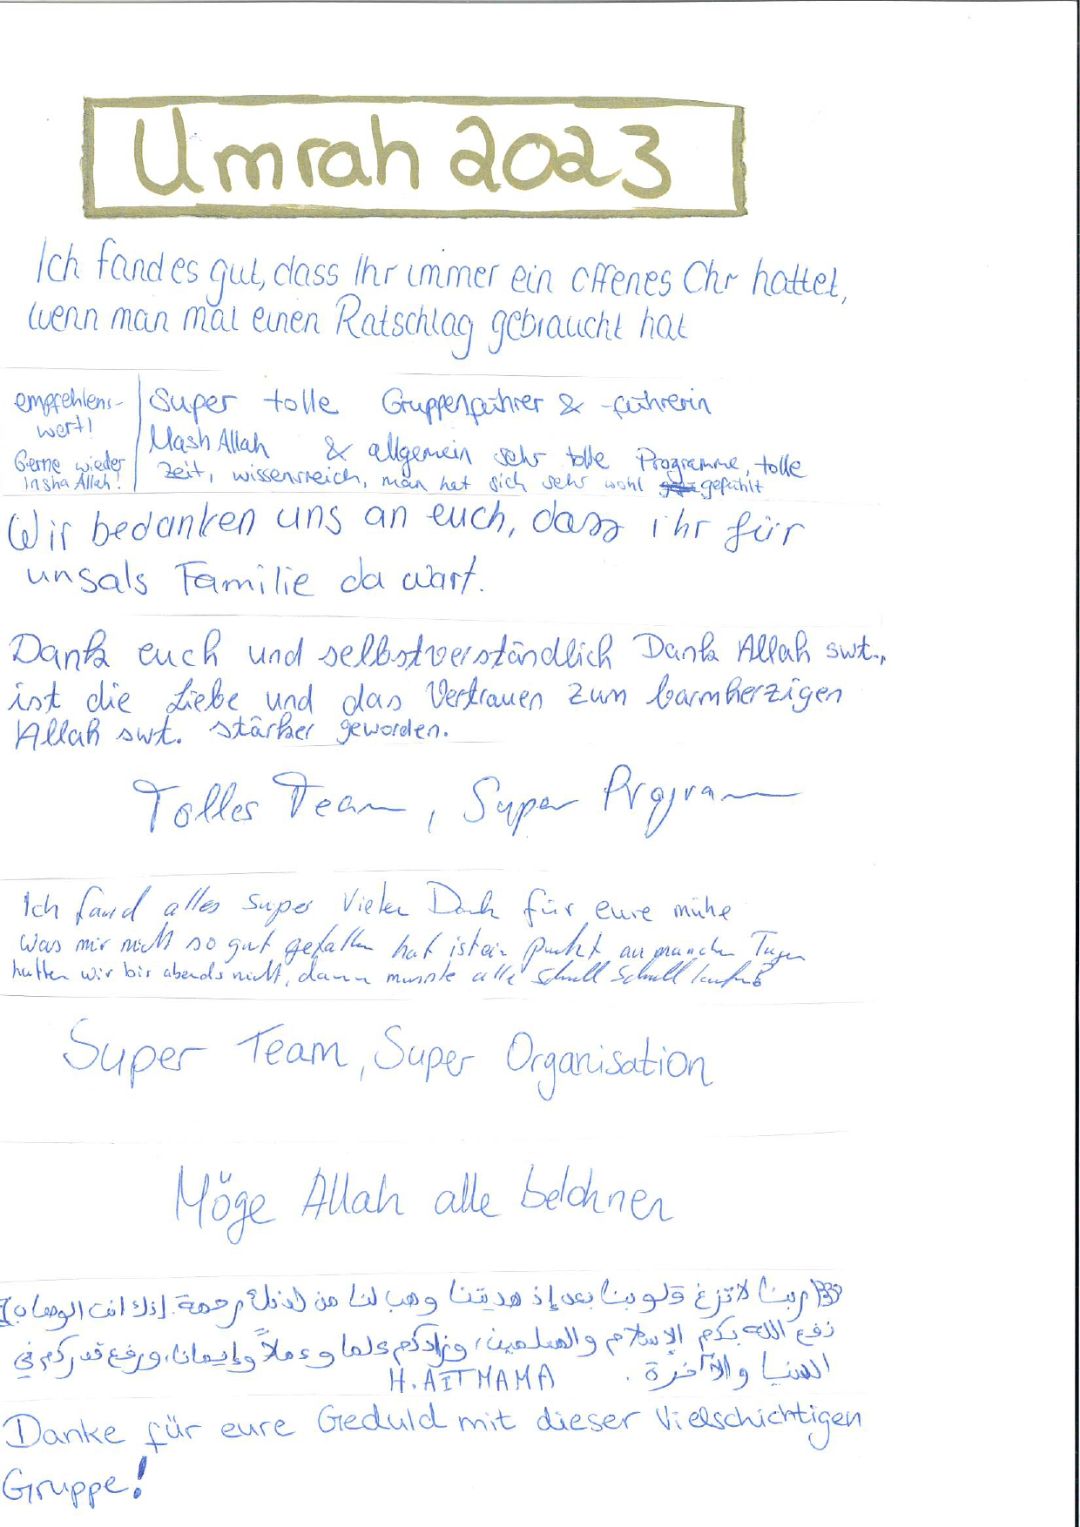 Umrah 2023
Ich fand es gut, dass Ihr immer ein offenes Ohr hattet,
wenn man mal einen Ratschlag gebraucht hat
empfehlens-
wert!
Gerne wieder
insha Allah!
Super tolle Gruppenführer & -führerin
Mash Allah & allgemein sehr tolle Programme, tolle
Zeit, wissensreich, man hat sich sehr wohl gefühlt
Wir bedanken uns an euch, dass ihr für
uns als Familie da wart.
Dank euch und selbstverständlich Dank Allah swt.,
ist die Liebe und das Vertrauen zum barmherzigen
Allah swt. stärker geworden.
Tolles Team, Super Program
Ich fand alles super Vielen Dank für eure mühe
was mir nicht so gut gefallen hat ist ein punkt an manchen Tagen
hatten wir bis abends nicht, dann musste alle schnell schnell laufen
Super Team, Super Organisation
Möge Allah alle belohnen
ربنا لا تزغ قلوبنا بعد إذ هديتنا وهب لنا من لدنك رحمة إنك انت الوهاب
نفع الله بكم الإسلام والمسلمين، وزادكم علما وعملاً وإيمانا، ورفع قدركم في
الدنيا والآخرة.
H. AITMAMA
Danke für eure Geduld mit dieser Vielschichtigen
Gruppe!